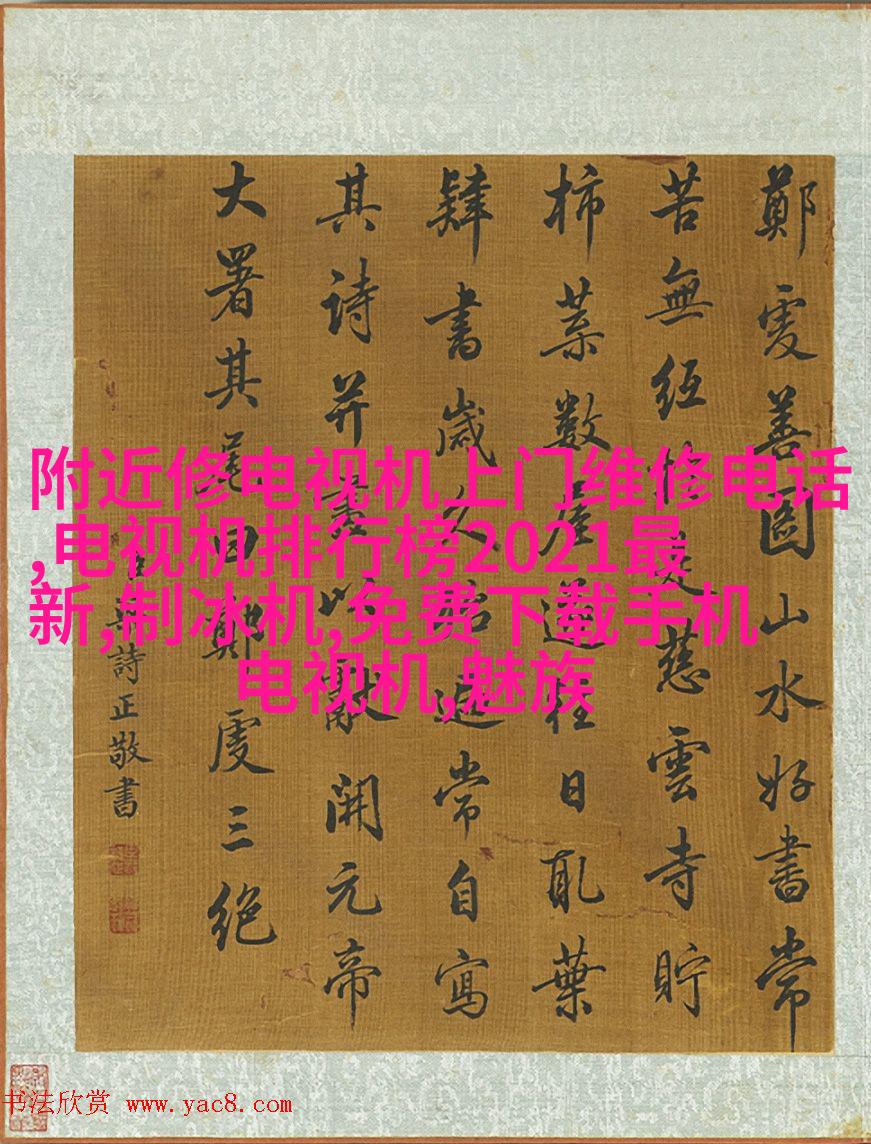 鄭虔善圖山水好書常
苦無紙於是慈雲寺貯
柿葉數屋遂往日取葉
肄書歲久殆遍常自寫
其詩并畫以獻開元帝
大署其尾曰鄭虔三絕
詩正敬書
附近修电视机上门维修电话
,电视机排行榜2021最
新,制冰机,免费下载手机
电视机,魅族
书法欣赏 www.yac8.com